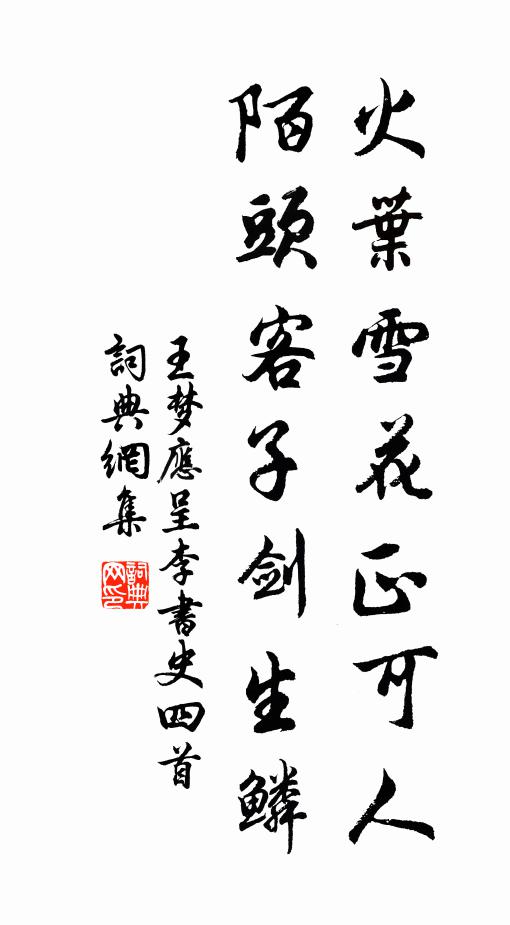 火葉雪花正可人
陌頭客子剑生鱗
王梦應呈李書史四首
詞典網集
詞典网印